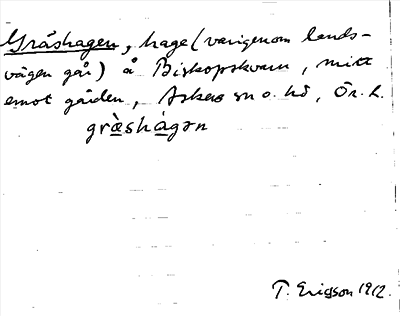 Gråshagen, hage (varigenom lands-
vägen går) å Biskopskvarn, mitt
emot gården, Askers sn o. hd, Ör. l.
grå̀shàgən
T. Ericsson 1912.